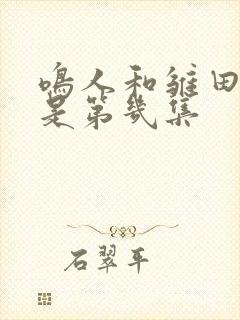 鳴人和雏田
是第幾集
石翠平